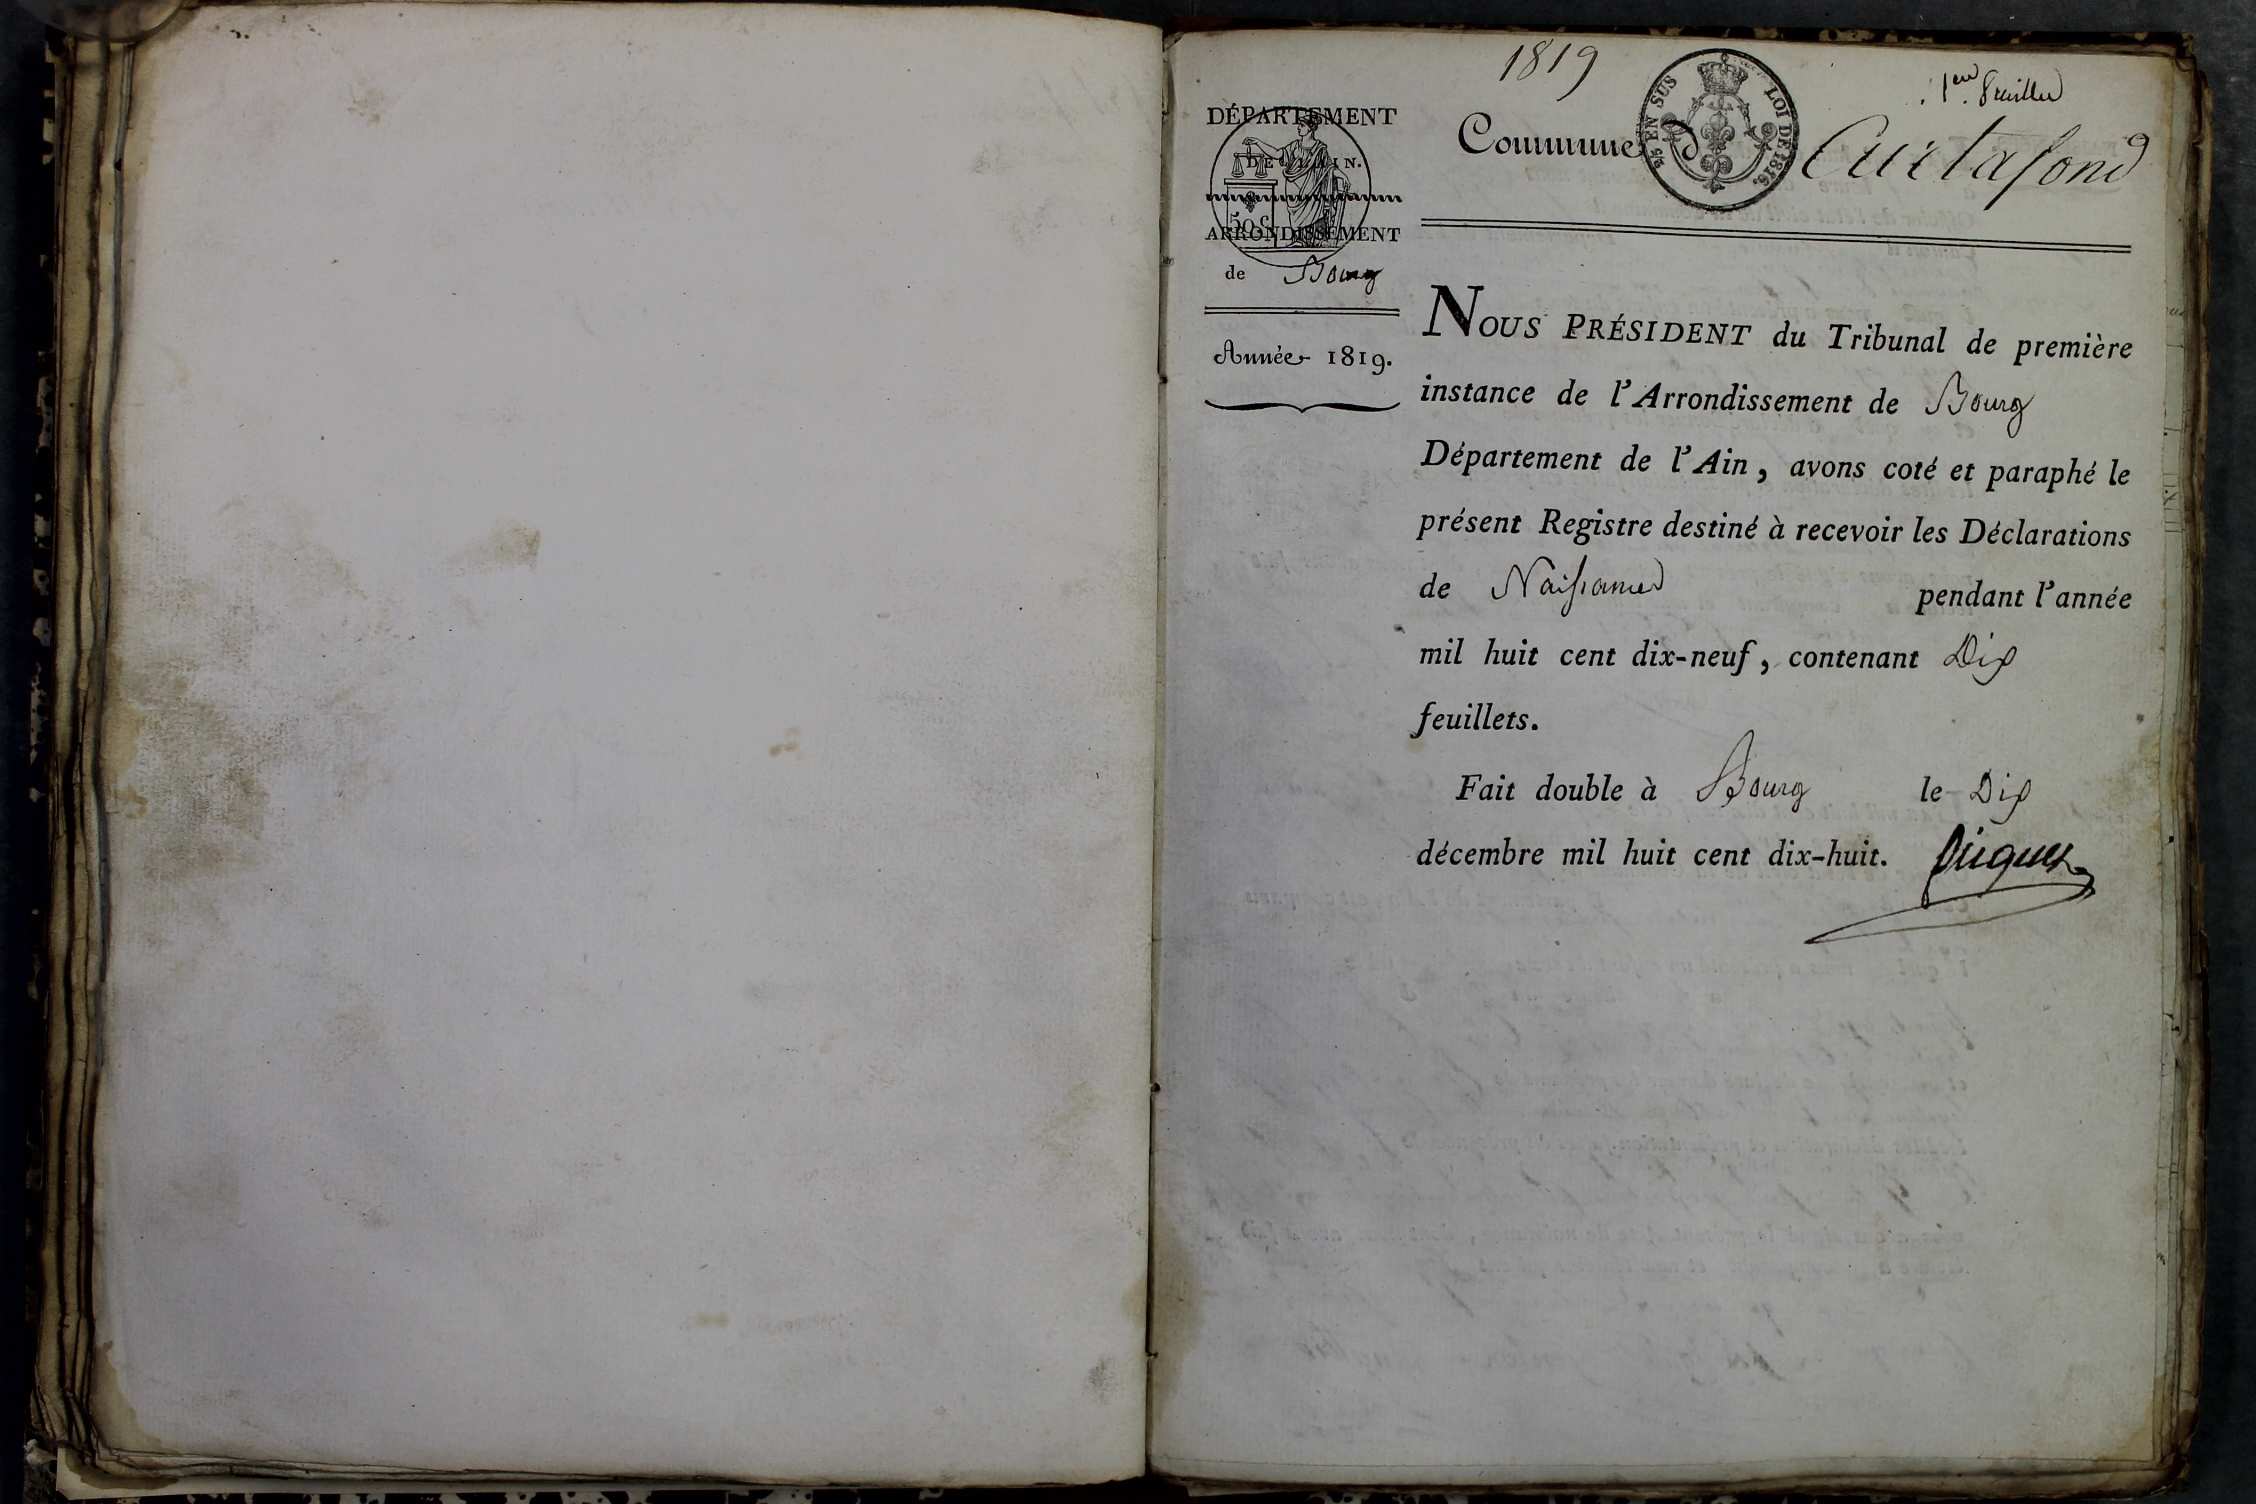 1819
1er feuillet
DÉPARTEMENT
DE L'AIN.
50 C
ARRONDISSEMENT
de Bourg
Année 1819.
EN SUS
LOI DE 1816.
Commune de Curtafond
NOUS PRÉSIDENT du Tribunal de première
instance de l'Arrondissement de Bourg
Département de l'Ain, avons coté et paraphé le
présent Registre destiné à recevoir les Déclarations
de Naissances pendant l'année
mil huit cent dix-neuf, contenant Dix
feuillets.
Fait double à Bourg le Dix
décembre mil huit cent dix-huit.